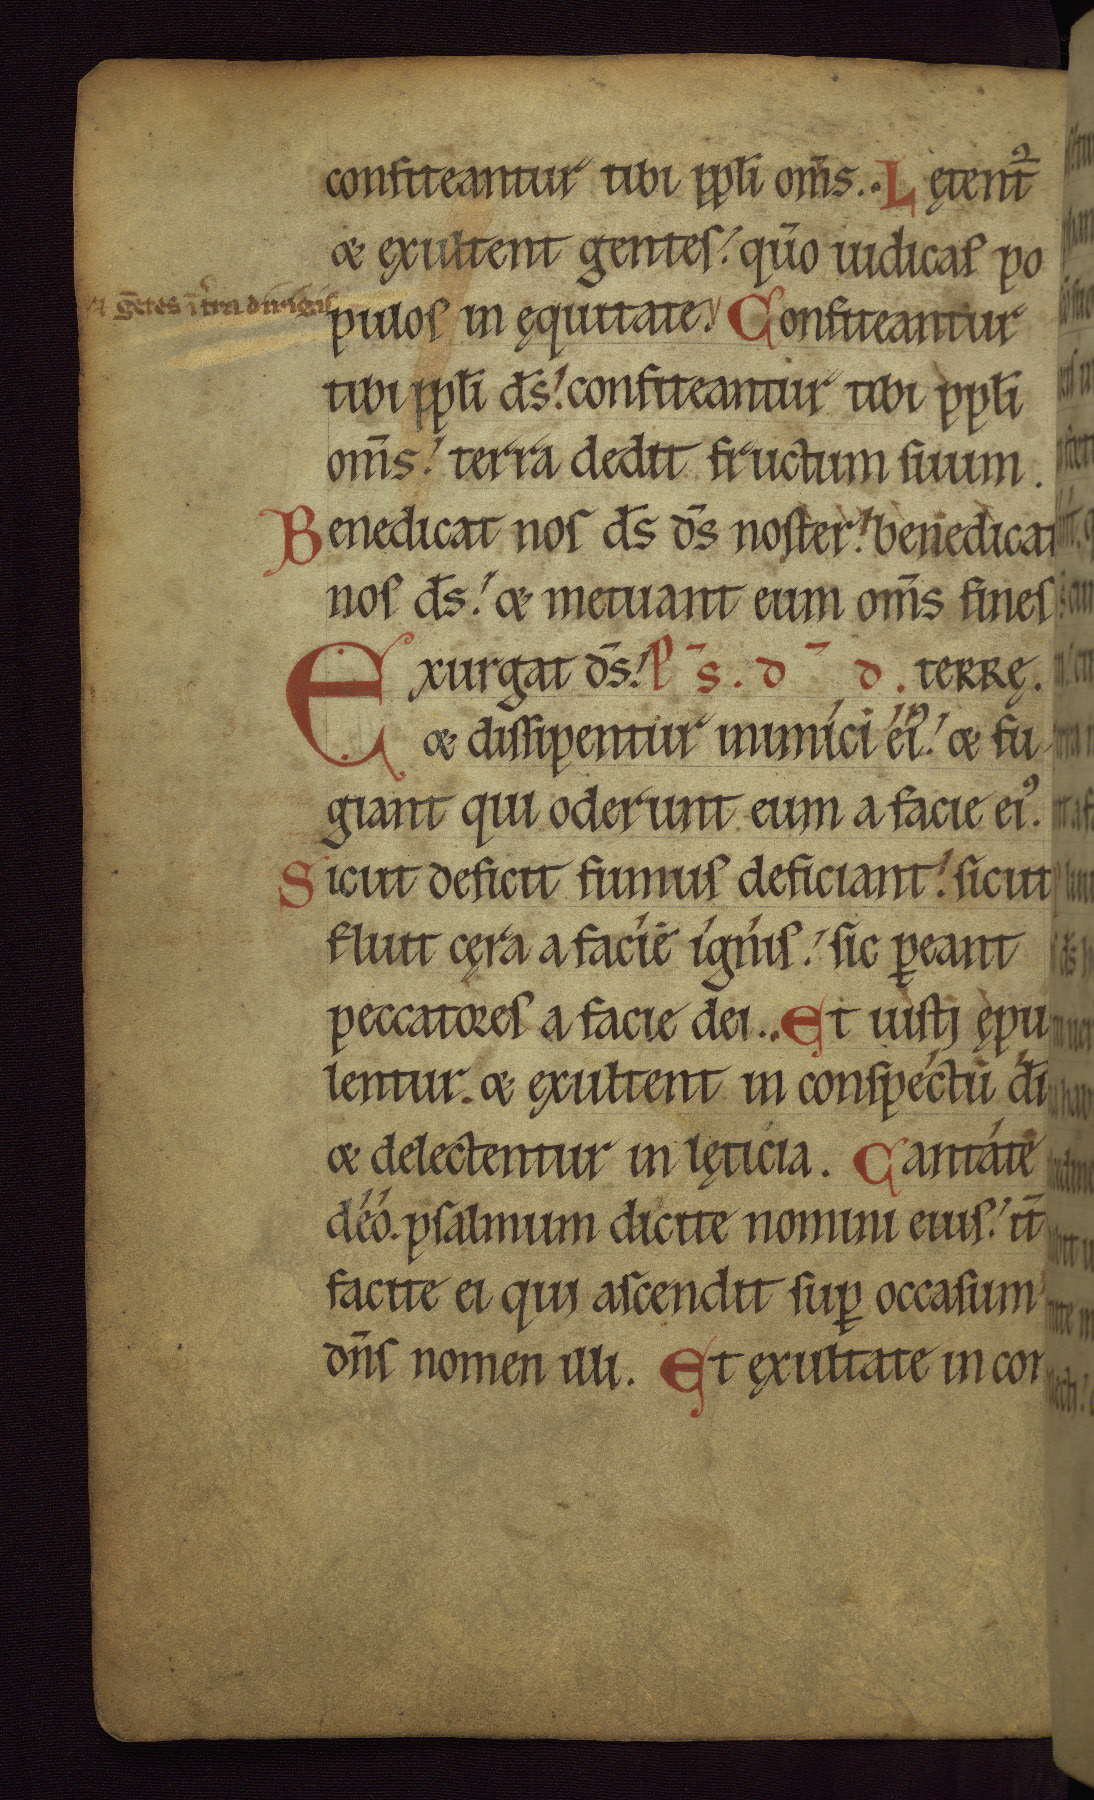 confiteantur tibi ppl̄i om̄s.. Lętent̄ᷣ
& ęxultent gentes! qūo iudicas po
gētes ī tr̄a dirigis
pulos in ęquitate! Confiteantur
tibi ppl̄i d̄s! confiteantur tibi ppl̄i
om̄s! terra dedit fructum suum.
Benedicat nos d̄s d̄s noster! benedicat
nos d̄s! & metuant eum om̄s fines
Exurgat d̄s! P̄s. D̄ D. terrę.
& dissipentur inimíci eiꝰ! & fu
giant qui oderunt eum a facie eiꝰ.
Sicut deficit fumus deficiant! sicut
fluit cęra a facie ignis! sic ꝑeant
peccatores a facie dei.. Et iusti ępu
lentur. & exultent in conspectu d̄i
& delectentur in lęticia. Cantate
deo. psalmum dicite nomini eius! it̄
facite ei qui ascendit suꝑ occasum
dn̄s nomen illi. Et ęxultate in con